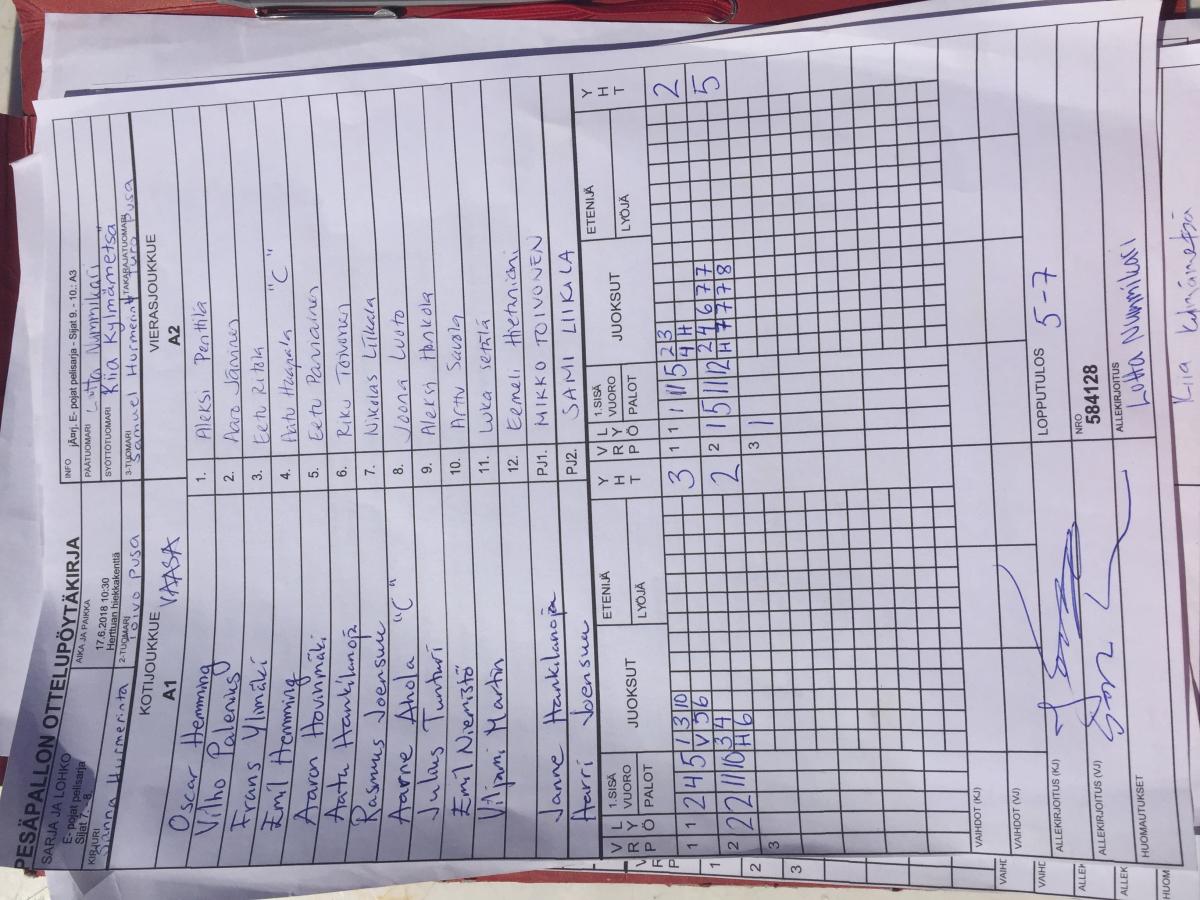 PESÄPALLON OTTELUPÖYTÄKIRJA
SARJA JA LOHKO
E- pojat pelisarja
Sijat 7. - 8.
AIKA JA PAIKKA
17.6.2018 10:30
Herttuan hiekkakenttä
INFO
E- pojat pelisarja - Sijat 9. - 10.: A3
PÄÄTUOMARI Lotta Nummikari
SYÖTTÖTUOMARI Kiia Kylmämetsä
KIRJURI
Hurmerinta
2-TUOMARI
Toivo Pusa
3-TUOMARI
Samuel Hurmerinta
TAKARAJATUOMARI
Pusa
KOTIJOUKKUE VAASA
A1
VIERASJOUKKUE
A2
Oscar Hemming 1. Aleksi Penttilä
Vilho Palenius 2. Aaro Järvinen
Frans Ylimäki 3. Eetu Ritola
Emil Hemming 4. Aatu Haapala "C"
Aaron Hovinmäki 5. Eetu Parviainen
Aatu Hankilanoja 6. Riku Toivonen
Rasmus Joensuu 7. Nikolas Liikala
Aarne Ahola "C" 8. Joona Luoto
Julius Tunturi 9. Aleksi Honkola
Emil Niemistö 10. Arttu Savola
Viljami Martin 11. Luka Setälä
12. Eemeli Hietaniemi
Janne Hankilanoja PJ1. MIKKO TOIVONEN
Harri Joensuu PJ2. SAMI LIIKALA
V R P L Y Ö 1.SISÄ VUORO PALOT JUOKSUT ETENIJÄ LYÖJÄ Y H T V R P L Y Ö 1.SISÄ VUORO PALOT JUOKSUT ETENIJÄ LYÖJÄ Y H T
1 1 2 4 5 1 3 10 3 1 1 1 11 5 2 3 2
V 5 6 4 H
2 2 2 11 10 3 4 2 2 1 5 11 12 2 4 6 7 7 5
H 6 H 7 7 7 8
3 3 1
VAIHDOT (KJ)
VAIHDOT (VJ)
LOPPUTULOS 5-7
ALLEKIRJOITUS (KJ)
NRO
584128
ALLEKIRJOITUS (VJ)
ALLEKIRJOITUS
Lotta Nummikari
HUOMAUTUKSET